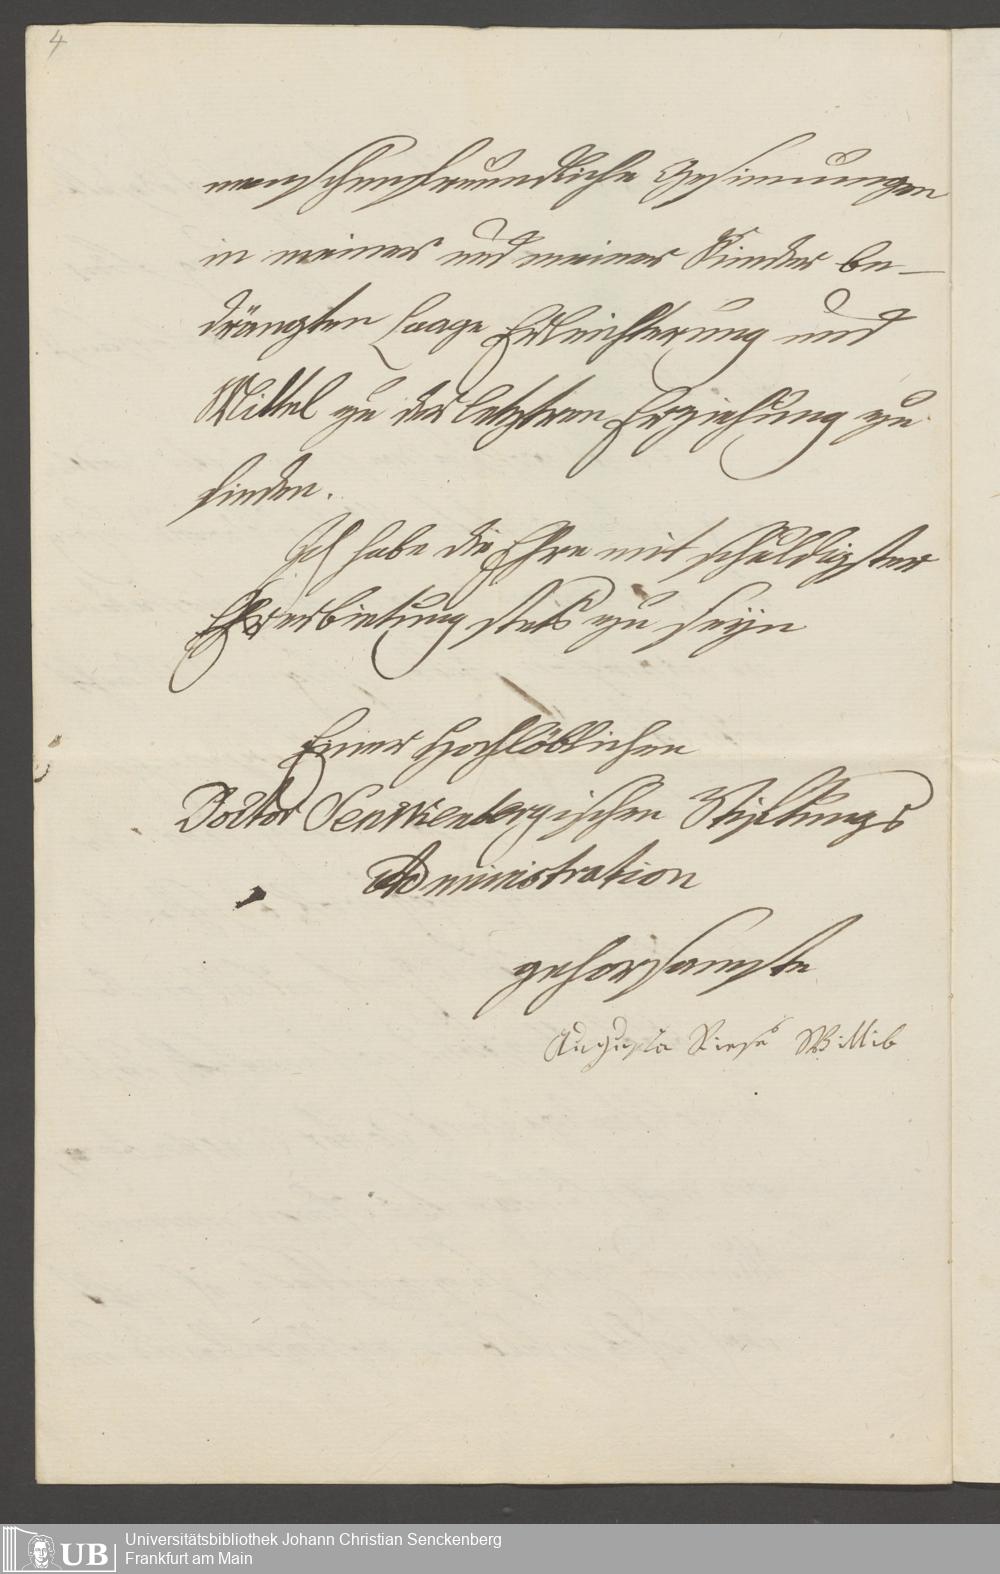 4
menschenfreundliche Gesinnungen
in meiner und meiner Kinder be-
drängten Laage Erleichterung und
Mittel zu der letztren Erziehung zu
finden.
Ich habe die Ehre mit schuldigster
Ehrerbietung stets zu seyn
Einer Hochlöblichen
Doctor Senkenbergischen Stiftungs
Administration
gehorsamste
Augusta
UB Universitätsbibliothek Johann Christian Senckenberg
Frankfurt am Main